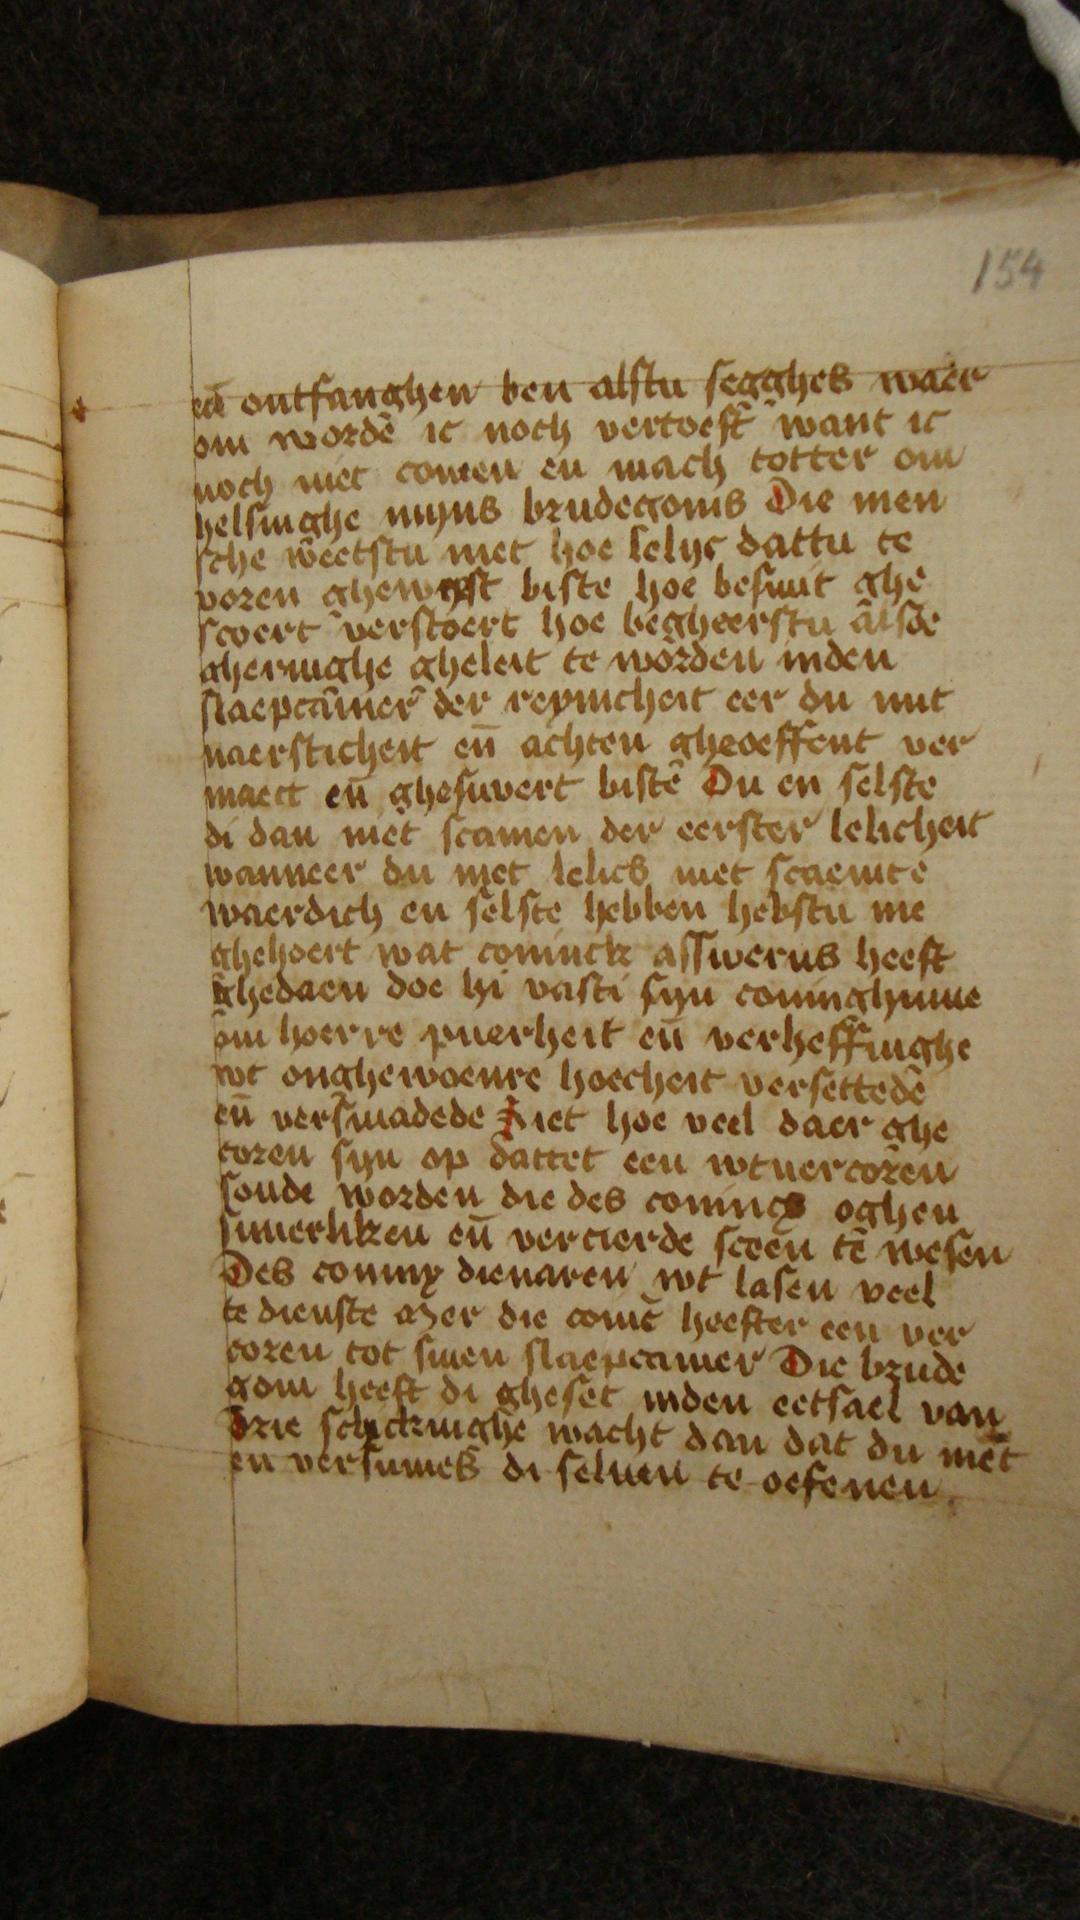 154
eñ ontfanghen ben alstu segghes waer
om wordē ic noch vertoeft want ic
noch niet comen en mach totter om
helsinghe mijns brudegoms Die men
sche weetstu niet hoe lelijc dattu te
voren gheweest biste hoe besmit ghe
scoert verstoert hoe begheerstu alsoe
gheringhe gheleit te worden inden
slaepcamer der reynicheit eer du mit
naersticheit eñ achten gheoeffent ver
maect eñ ghesuvert biste Du en selste
di dan niet scamen der eerster lelicheit
wanneer du niet lelics niet scaemte
waerdich en selste hebben hebstu nie
ghehoert wat coninck asswerus heeft
ghedaen doe hi vasti sijn coninghinne
om hoerre puerheit eñ verheffinghe
wt onghewoenre hoecheit versettedē
eñ versmadede Siet hoe veel daer ghe
coren sijn op dattet een wtuercoren
soude worden die des conincs oghen
suuerliken eñ vercierde sceen te wesen
Des coninx dienaren wt lasen veel
te dienste mer die conīc heefter een ver
coren tot sinen slaepcamer Die brude
gom heeft di gheset inden eetsael van
drie schickinghe wacht dan dat du niet
en versumes di seluen te oefenen